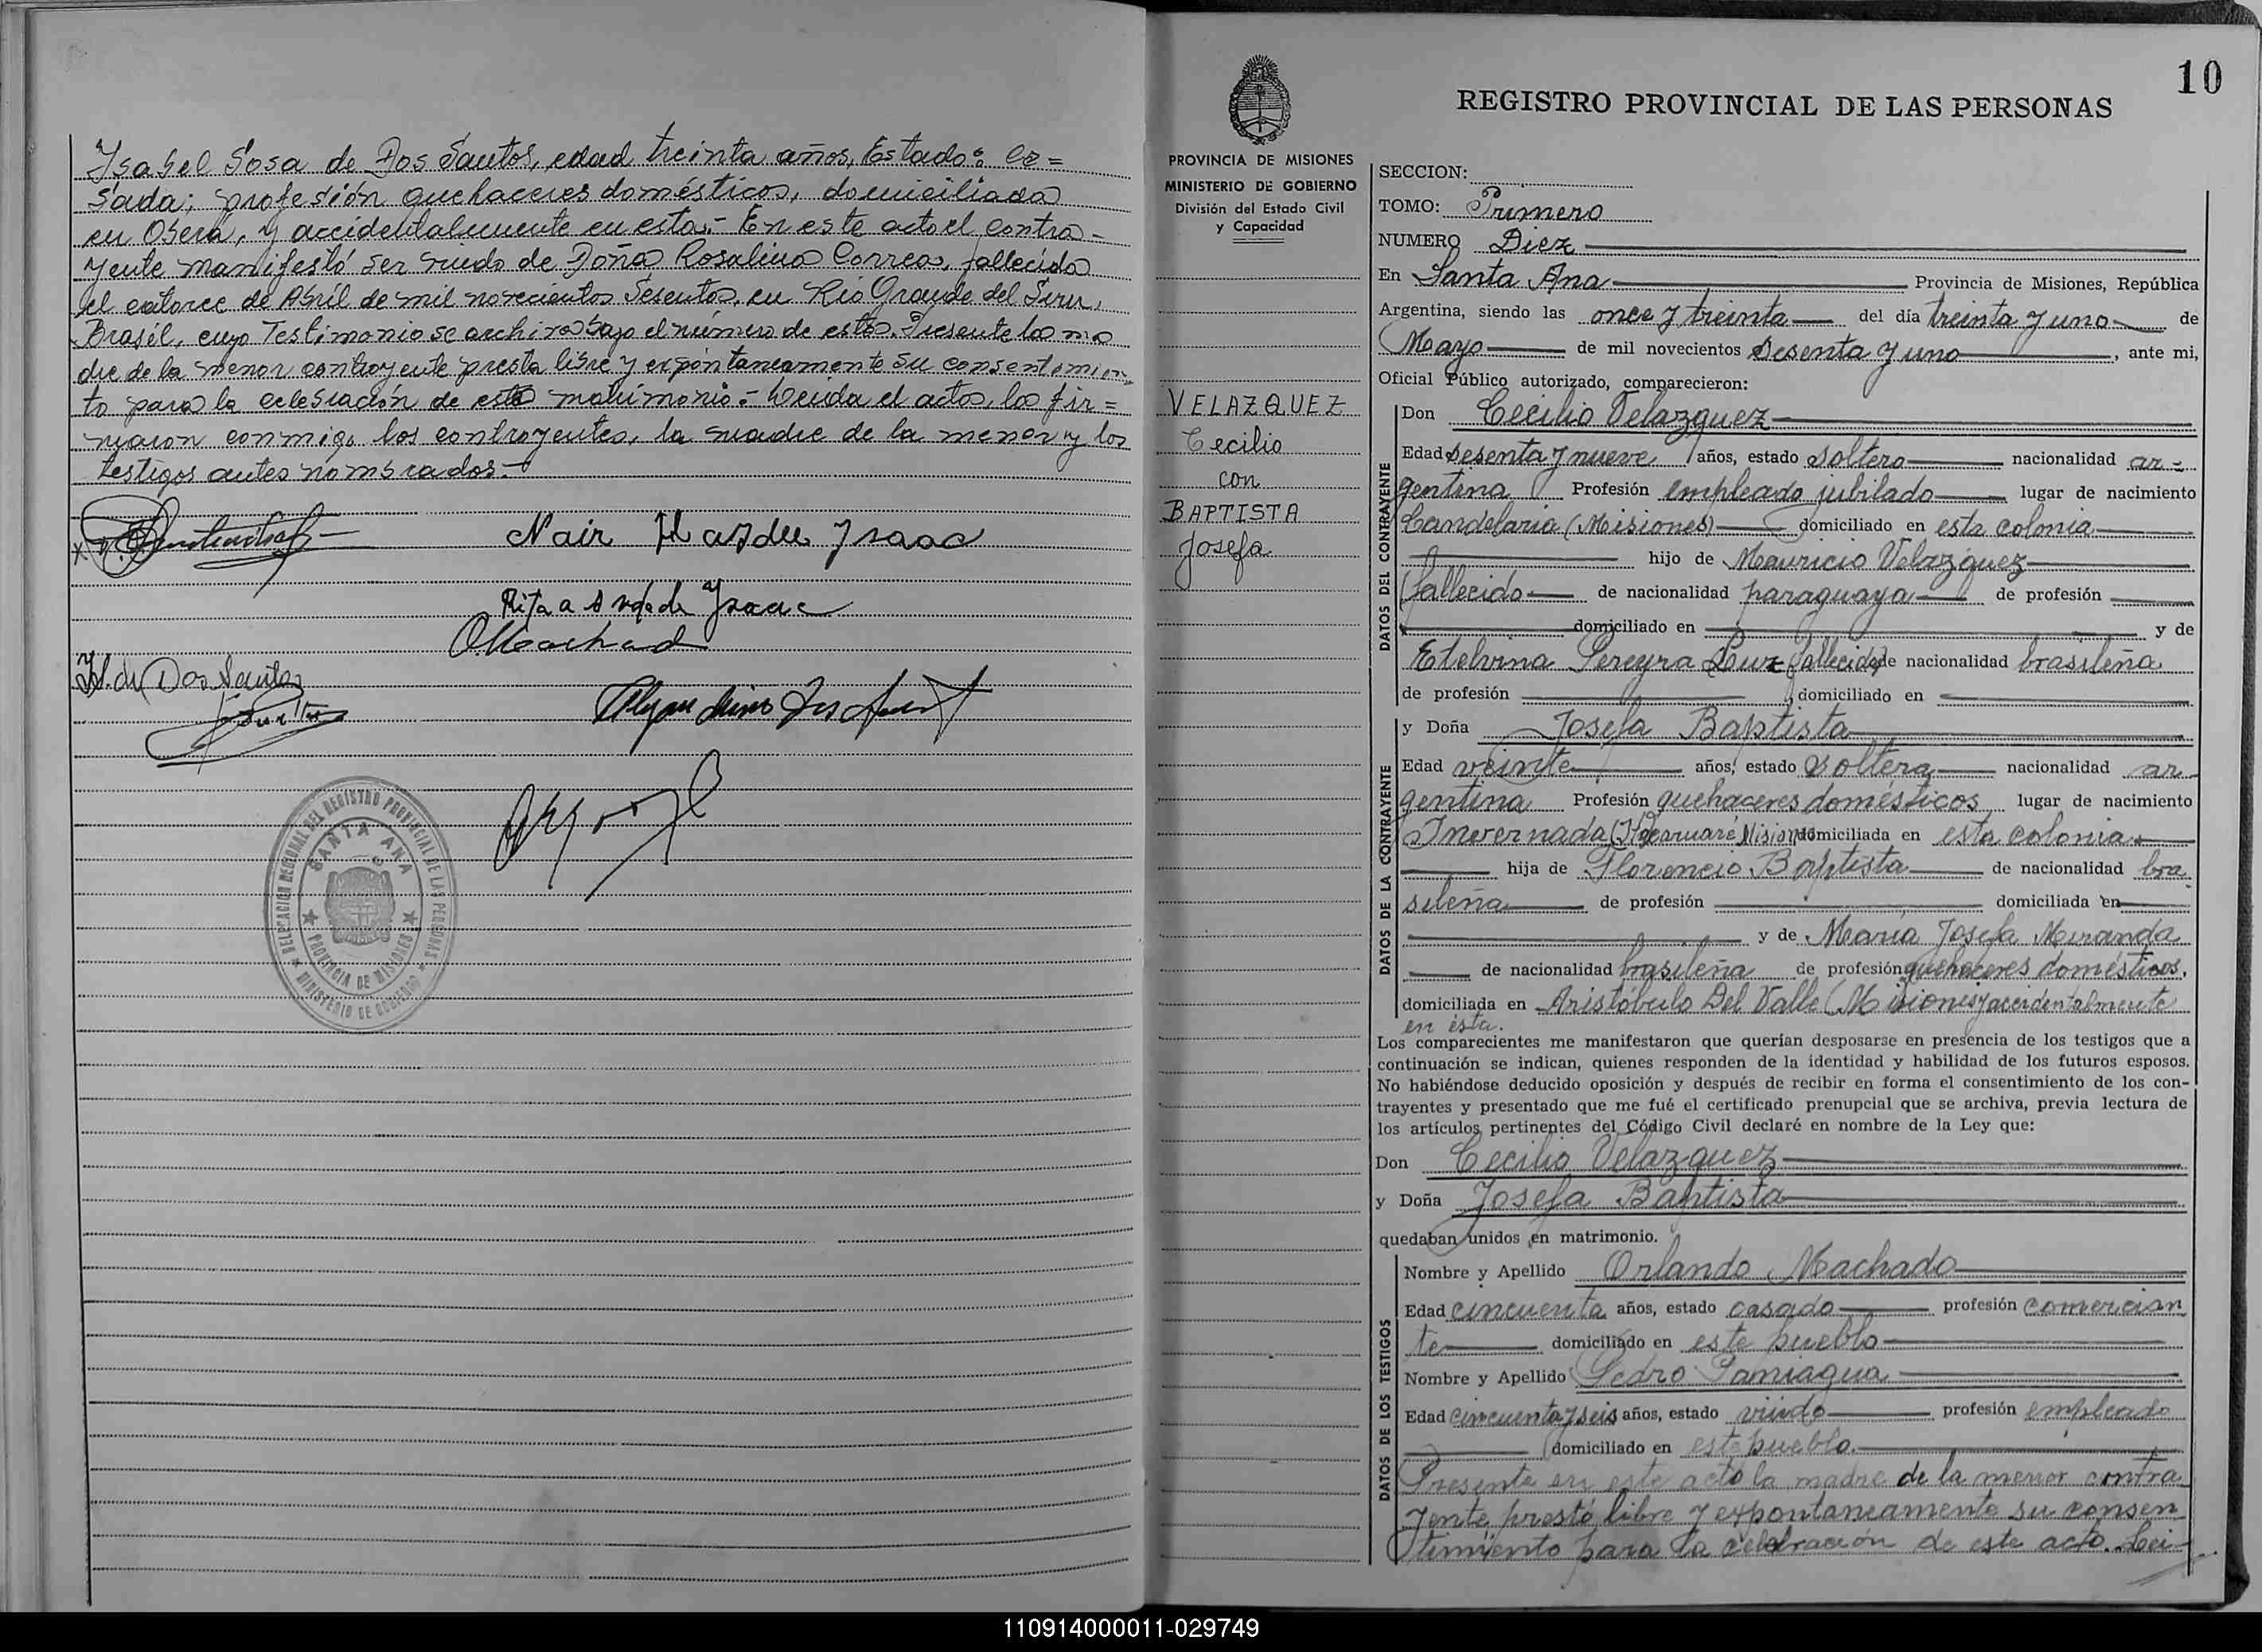 Isabel Sosa de Dos Santos, edad treinta años, Estado: ca=
sada; profesión quehaceres domésticos, domiciliada
en Oberá, y accidentalmente en esta.- En este acto el contra-
yente manifestó ser viudo de Doña Rosalina Correa, fallecida
el catorce de Abril de mil novecientos sesenta, en Río Grande del Sur,
Brasil, cuyo Testimonio se archiva bajo el número de esta. Presente la ma
dre de la menor contrayente presta libre y expontaneamente su consentimien
to para la celebración de este matrimonio.- Leida el acta, la fir=
maron conmigo los contrayentes, la madre de la menor y los
testigos antes nombrados.-
Nair Isaac
Rita Isaac
OMachado
I.S. de Dos Santos
DELEGACION REGIONAL DEL REGISTRO PROVINCIAL DE LAS PERSONAS
SANTA ANA
PROVINCIA DE MISIONES
MINISTERIO DE GOBIERNO
10
REGISTRO PROVINCIAL DE LAS PERSONAS
PROVINCIA DE MISIONES
MINISTERIO DE GOBIERNO
División del Estado Civil
y Capacidad
VELAZQUEZ
Cecilio
con
BAPTISTA
Josefa
SECCION:
TOMO: Primero
NUMERO Diez
En Santa Ana Provincia de Misiones, República
Argentina, siendo las once y treinta del día treinta y uno de
Mayo de mil novecientos sesenta y uno, ante mi,
Oficial Público autorizado, comparecieron:
DATOS DEL CONTRAYENTE
Don Cecilio Velazquez
Edad sesenta y nueve años, estado soltero nacionalidad ar-
gentina Profesión empleado jubilado lugar de nacimiento
Candelaria (Misiones) domiciliado en esta colonia
hijo de Mauricio Velazquez
(fallecido de nacionalidad paraguaya de profesión
domiciliado en y de
Etelvina Pereyra (fallecida) de nacionalidad brasileña
de profesión domiciliado en
DATOS DE LA CONTRAYENTE
y Doña Josefa Baptista
Edad veinte años, estado soltera nacionalidad ar
gentina Profesión quehaceres domésticos lugar de nacimiento
Invernada Misiones domiciliada en esta colonia
hija de Florencio Baptista de nacionalidad bra
sileña de profesión domiciliada en
y de María Josefa Miranda
de nacionalidad brasileña de profesión quehaceres domésticos,
domiciliada en Aristóbulo Del Valle (Misiones y accidentalmente
en ésta.
Los comparecientes me manifestaron que querían desposarse en presencia de los testigos que a
continuación se indican, quienes responden de la identidad y habilidad de los futuros esposos.
No habiéndose deducido oposición y después de recibir en forma el consentimiento de los con-
trayentes y presentado que me fué el certificado prenupcial que se archiva, previa lectura de
los artículos pertinentes del Código Civil declaré en nombre de la Ley que:
Don Cecilio Velazquez
y Doña Josefa Baptista
quedaban unidos en matrimonio.
DATOS DE LOS TESTIGOS
Nombre y Apellido Orlando Machado
Edad cincuenta años, estado casado profesión comercian
te domiciliado en este pueblo
Nombre y Apellido Pedro Paniagua
Edad cincuenta y seis años, estado viudo profesión empleado
domiciliado en este pueblo.
Presente en este acto la madre de la menor contra
yente, prestó libre y expontaneamente su consen
timiento para la celebración de este acto. Lei-
110914000011-029749